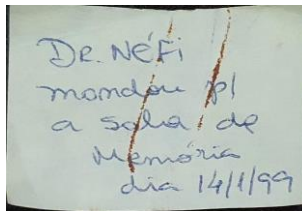 DR. NÉFi
mandou p/
a sala de
Memória
dia 14/1/99